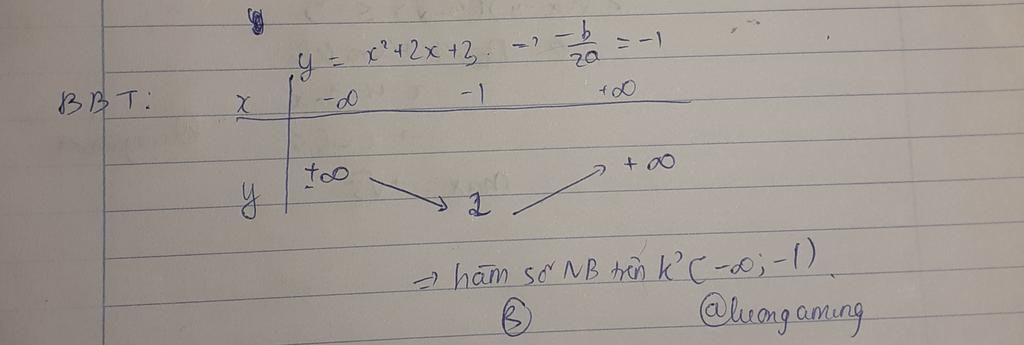 y = x²+2x+3. => -b/2a = -1
BBT: x -∞ -1 +∞
y +∞ 2 +∞
=> hàm số NB trên k² (-∞; -1)
Ⓑ @luongaming